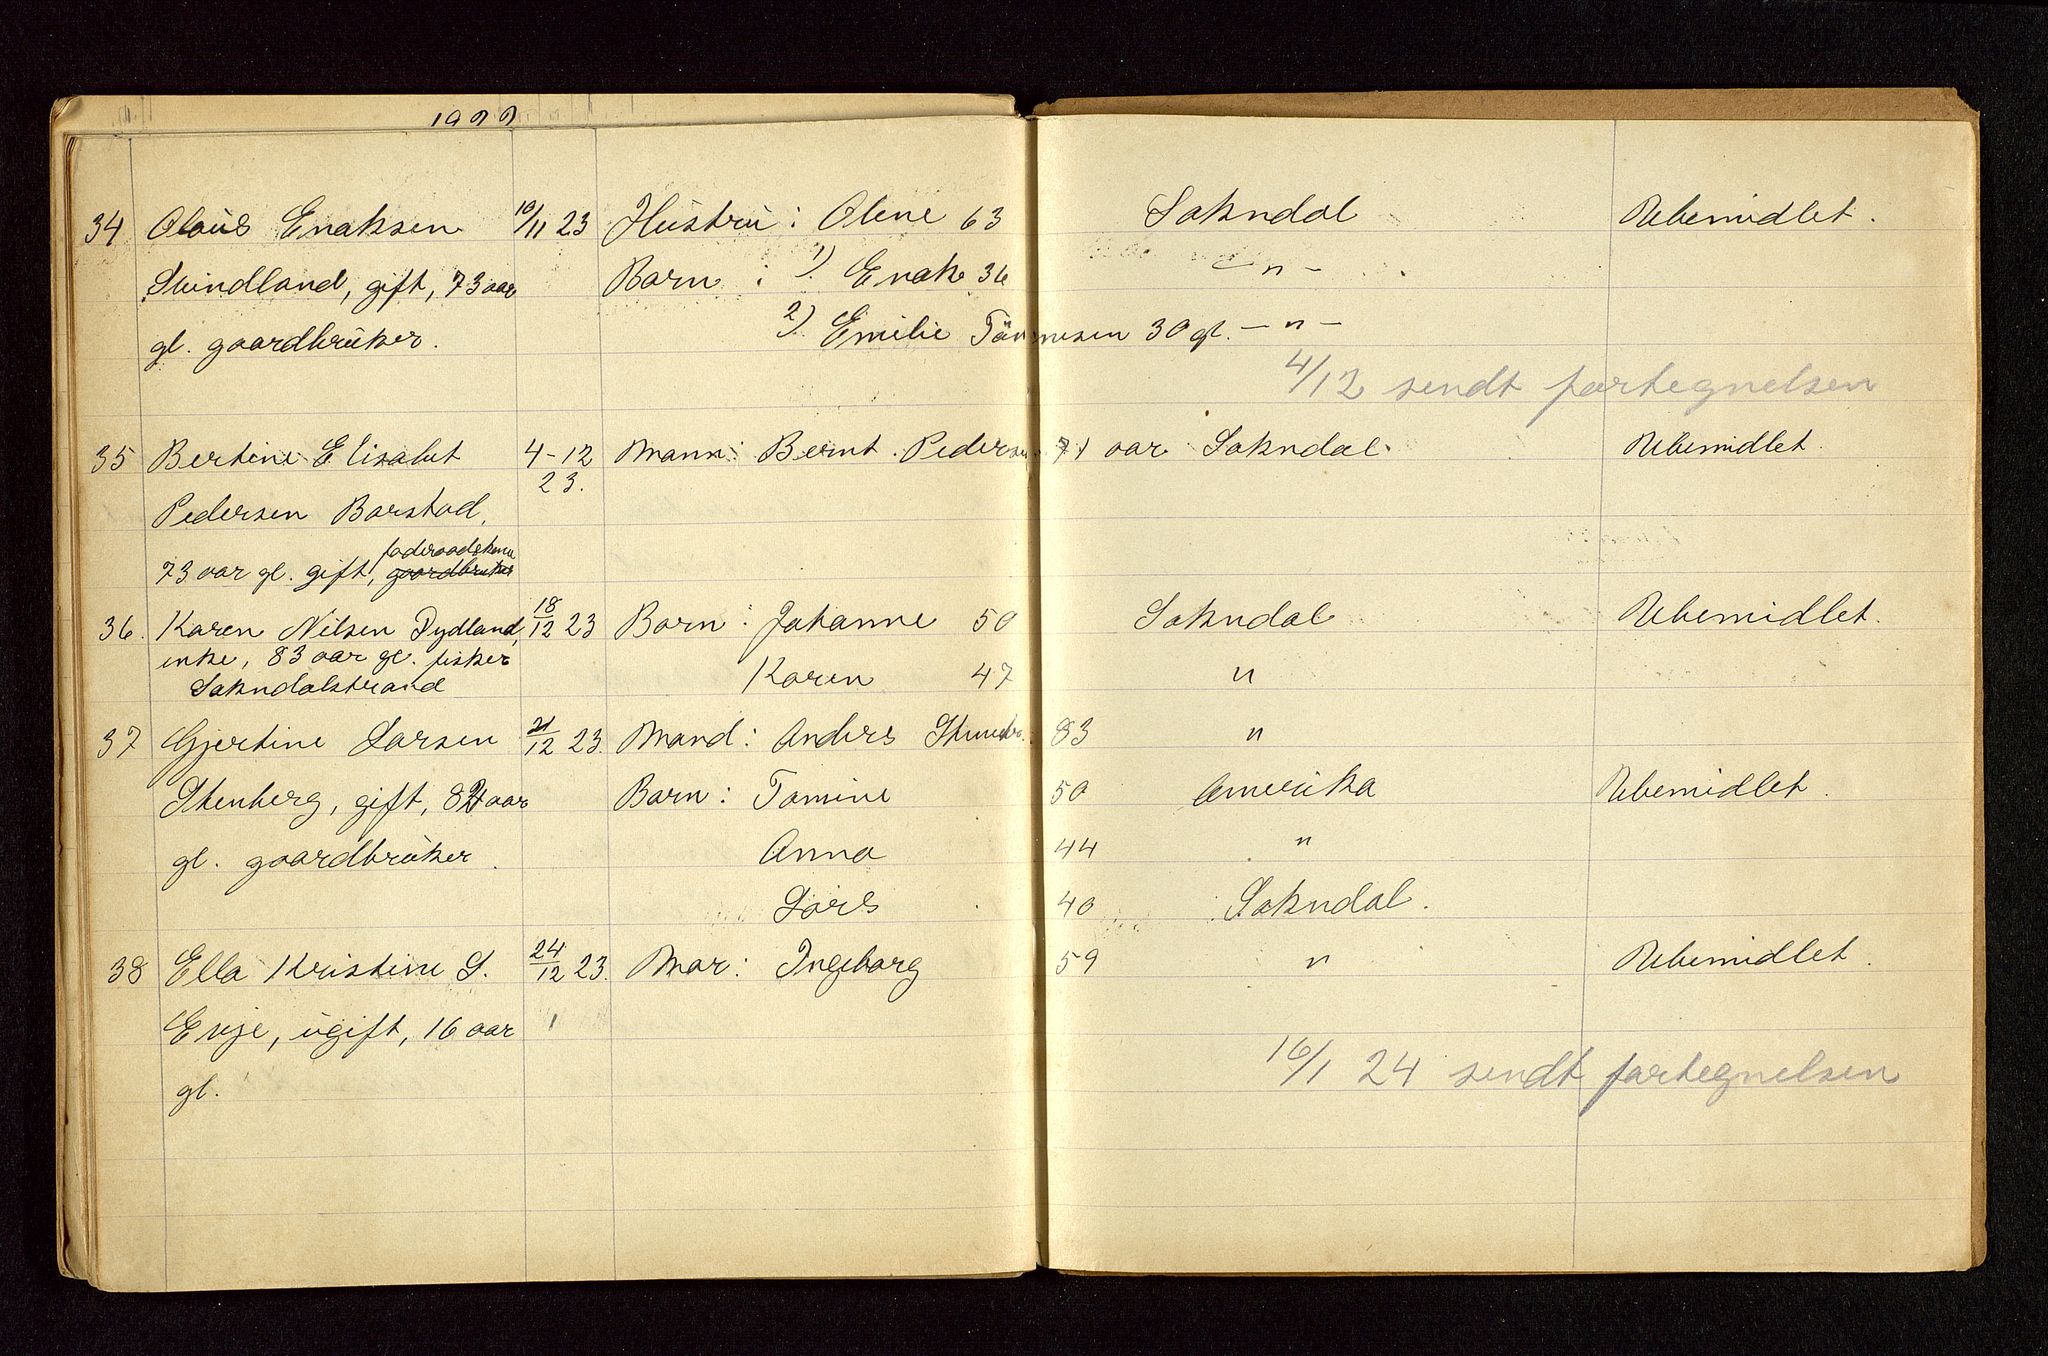 34 Olaus Enoksen 10/11 23 Hustru : Olene 63 Sokndal Ubemidlet.
Svindland, gift, 73 aar Barn : 1) Enok 36 - " -
gl. gaardbruker. 2) Emilie Tönnesen 30 gl. - " -
4/12 sendt fortegnelsen
35 Bertine Elisabet 4-12 Mann: Bernt Pedersen 71 aar Sokndal Ubemidlet.
23.
Pedersen Barstad,
foderaadskone
73 aar gl. gift, gaardbruker
36. Karen Nilsen Dydland, 18/12 23 Barn : Johanne 50 Sokndal Ubemidlet.
enke, 83 aar gl. fisker Karen 47 "
Sokndalstrand
37 Gjertine Larsen 21/12 23. Mand : Anders 83 "
Stenberg, gift, 82 aar Barn : Tomine 50 Amerika Ubemidlet.
gl. gaardbruker. Anna 44 "
Lars 40 Sokndal.
38 Ella Kristine S. 24/12 23. Mor : Ingeborg 59 " Ubemidlet.
Evje, ugift, 16 aar
gl.
16/1 24 sendt fortegnelsen